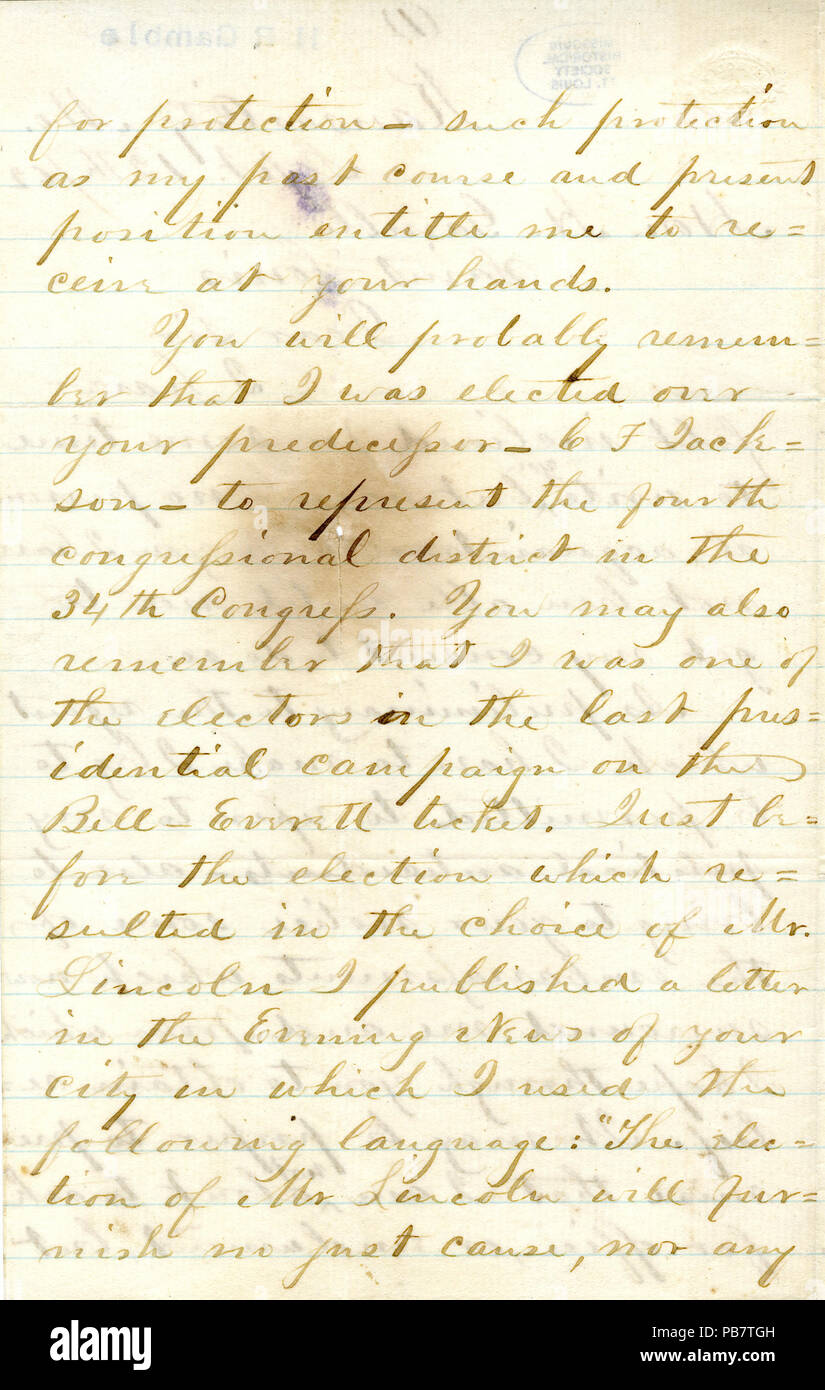 for protection — such protection
as my past course and present
position entitle me to re=
ceive at your hands.
You will probably remem=
ber that I was elected over
your predecessor — C F Jack=
son — to represent the fourth
congressional district in the
34th Congress. You may also
remember that I was one of
the electors in the last pres=
idential campaign on the
Bell — Everett ticket. Just be=
fore the election which re=
sulted in the choice of Mr.
Lincoln I published a letter
in the Evening News of your
city in which I used the
following language: "The elec=
tion of Mr Lincoln will fur=
nish no just cause, nor any
H R Gamble
MISSOURI
HISTORICAL
SOCIETY
ST. LOUIS
alamy
Image ID: PB7TGH
www.alamy.com